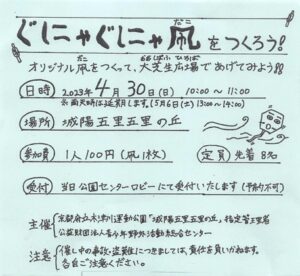 ぐにゃぐにゃ凧をつくろう!
だこ
オリジナル凧をつくって、大芝生広場であげてみよう!!
だこ
おおしばふひろば
日時 2023年4月30日(日) 10:00~11:00
※雨天時は延期します。(5月6日(土) 13:00~14:00)
場所 城陽五里五里の丘
参加費 1人100円(凧1枚) 定員 先着8名
受付 当日公園センターロビーにて受付いたします(予約不可)
主催 京都府立木津川運動公園「城陽五里五里の丘」指定管理者
公益財団法人青少年野外活動総合センター
注意 催し中の事故・盗難等につきましては、責任を負いかねます。
各自ご注意ください。